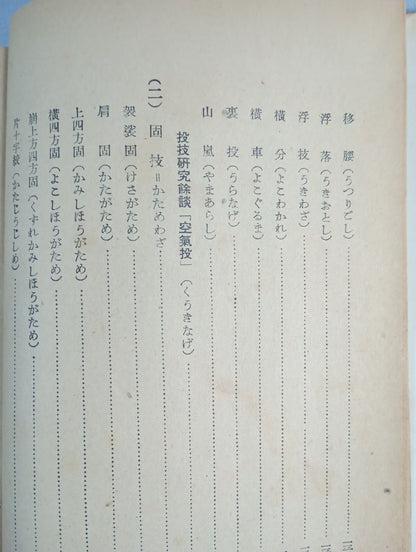 移腰(うつりごし)
浮落(うきおとし)
浮技(うきわざ)
橫分(よこわかれ)
橫車(よこぐるま)
裏投(うらなげ)
山嵐(やまあらし)
投技硏究餘談「空氣投」(くうきなげ)
(二)固技=かためわざ
袈裟固(けさがため)
肩固(かたがため)
上四方固(かみしほうがため)
橫四方固(よこしほうがため)
崩上方四方固(くずれかみしほうがため)
片十字絞(かたじうじしめ)